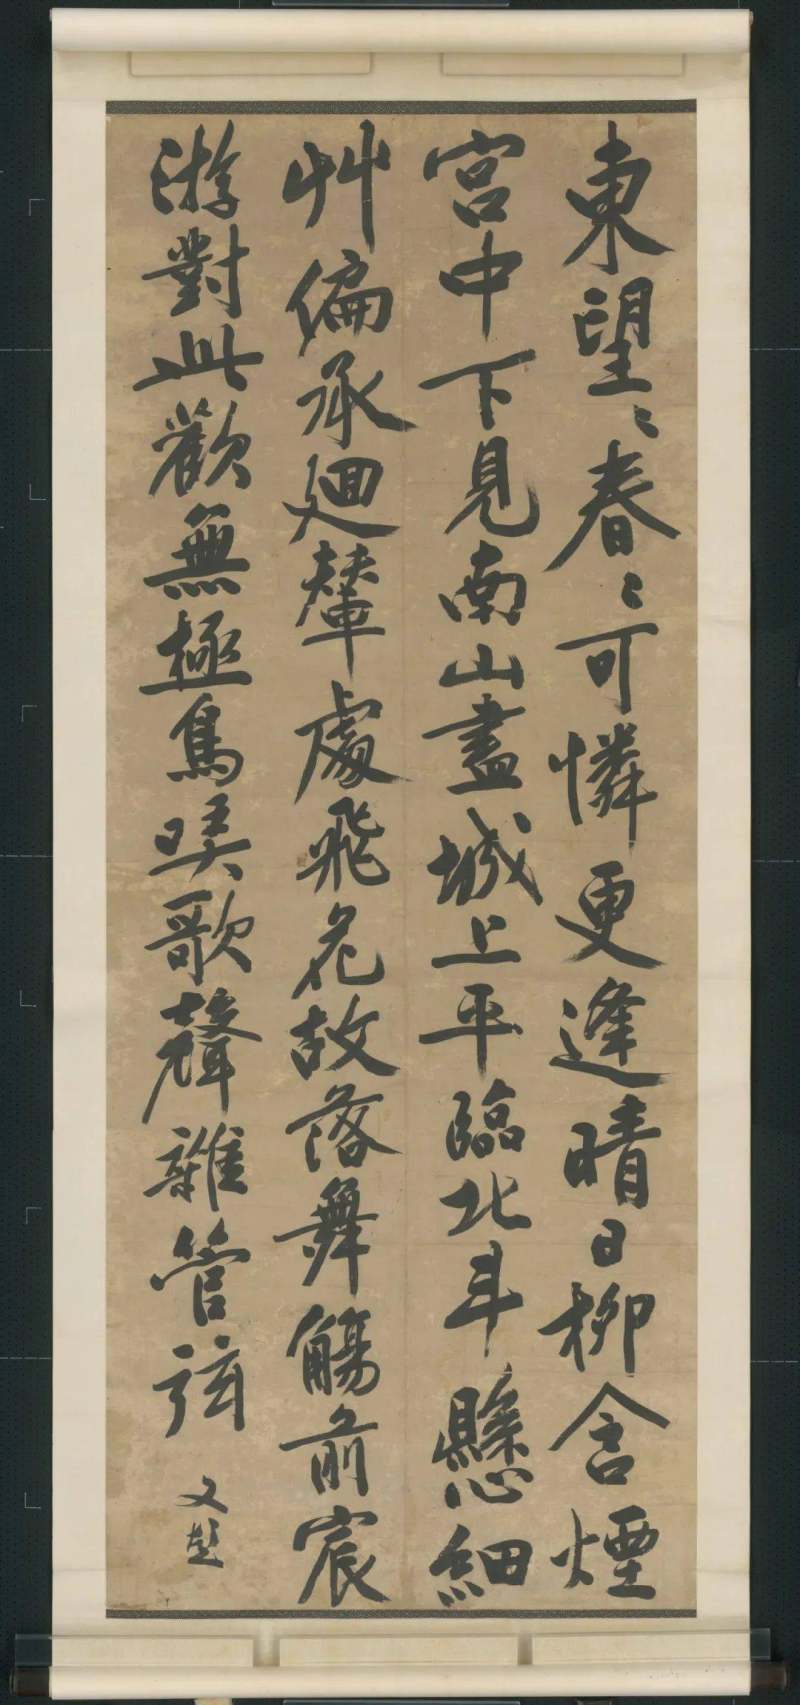 東望〻春〻可憐更逢晴日柳含煙
宮中下見南山盡城上平臨北斗懸細
艸偏承廻輦處飛花故落舞觴前宸
游對此歡無極鳥哢歌聲雜管弦
文彭